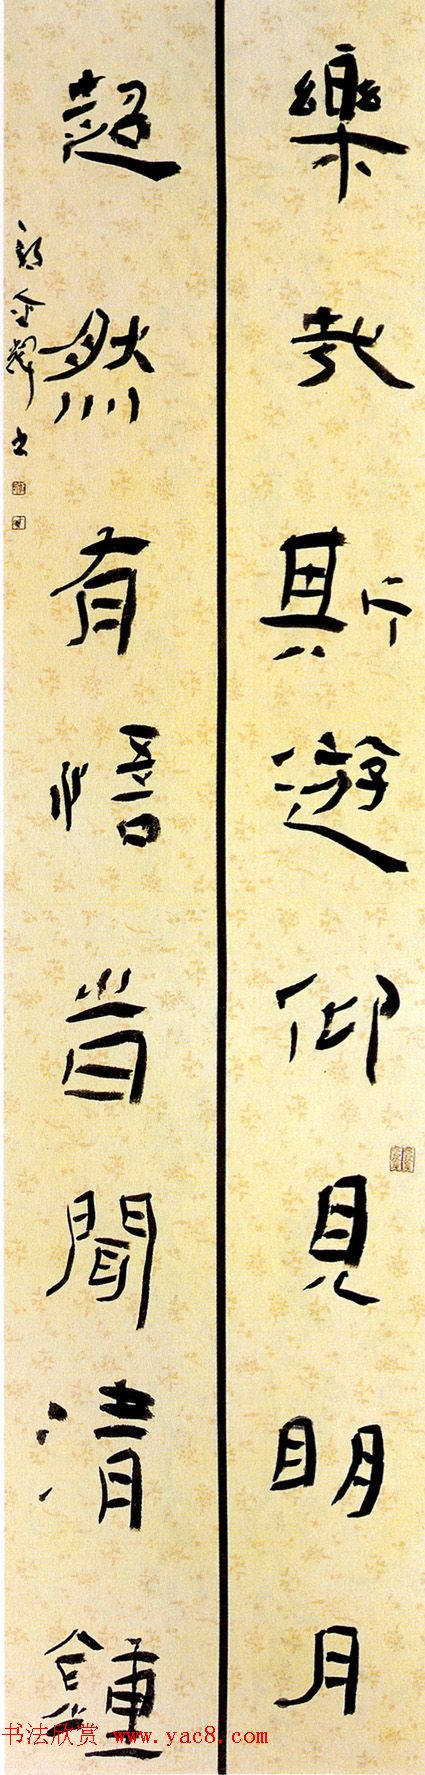 樂哉斯遊仰見明月
超然有悟旹聞清鐘
金輝书
书法欣赏 www.yac8.com